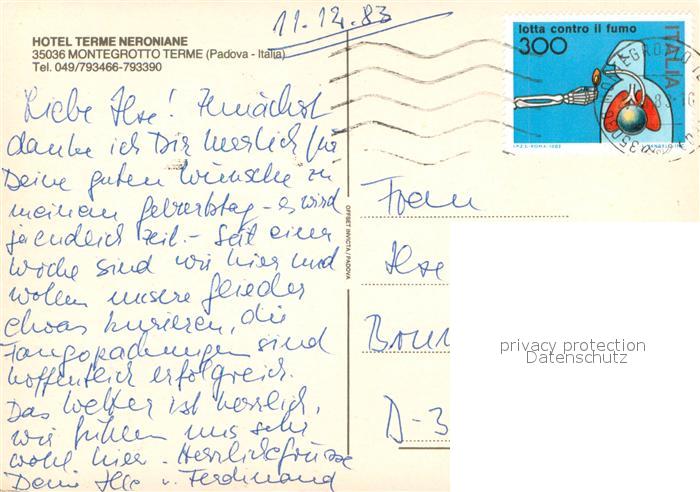 11.12.83
HOTEL TERME NERONIANE
35036 MONTEGROTTO TERME (Padova - Italia)
Tel. 049/793466-793390
lotta contro il fumo
300
ITALIA
I.P.Z.S. - ROMA - 1982
Liebe Ilse! Zunächst
danke ich Dir herzlich für
Deine guten Wünsche zu
meinem Geburtstag - es wird
ja endlich Zeit. - Seit einer
Woche sind wir hier und
wollen unsere Glieder
etwas kurieren, die
Fangopackungen sind
hoffentlich erfolgreich.
Das Wetter ist herrlich,
wir fühlen uns sehr
wohl hier. - Herzlichst grüsse
Deine Ilse u. Ferdinand
OFFSET INVICTA / PADOVA
Frau
Ilse
D-3
privacy protection
Datenschutz